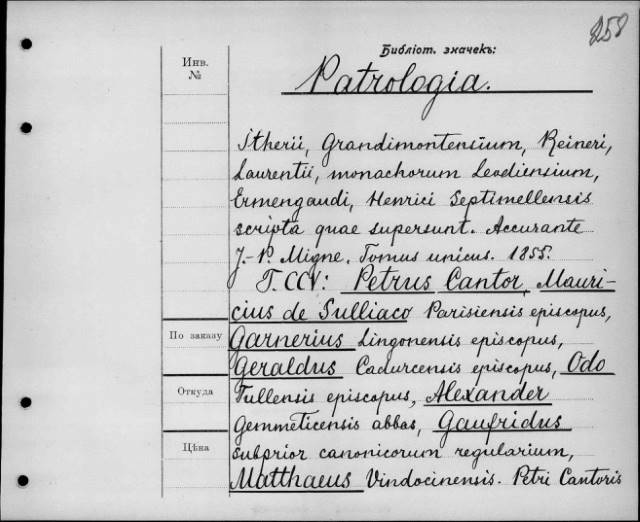 258
Библіот. значекъ:
Инв.
№
Patrologia.
Itherii, Grandimontensium, Reineri,
Laurentii, monachorum Leodiensium,
Ermengaudi, Henrici Septimellensis
scripta quae supersunt. Accurante
J.-P. Migne. Tomus unicus. 1855.
T. CCV: Petrus Cantor, Mauri-
cius de Sulliaco Parisiensis episcopus,
По заказу
Garnerius Lingonensis episcopus,
Geraldus Cadurcensis episcopus, Odo
Откуда
Tullensis episcopus, Alexander
Gemmeticensis abbas, Gaufridus
Цѣна
subprior canonicorum regularium,
Matthaeus Vindocinensis. Petri Cantoris